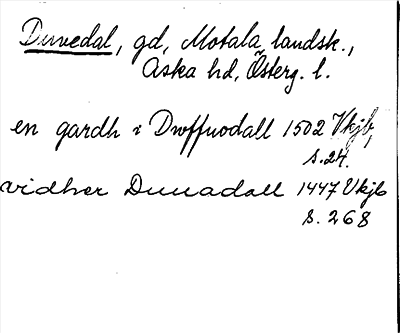 Duvedal, gd, Motala landsk.,
Aska hd, Österg. l.
en gardh i Dwffwodall 1502 Vkjb,
s. 24.
vidher Duuadall 1447 Vkjb
s. 268